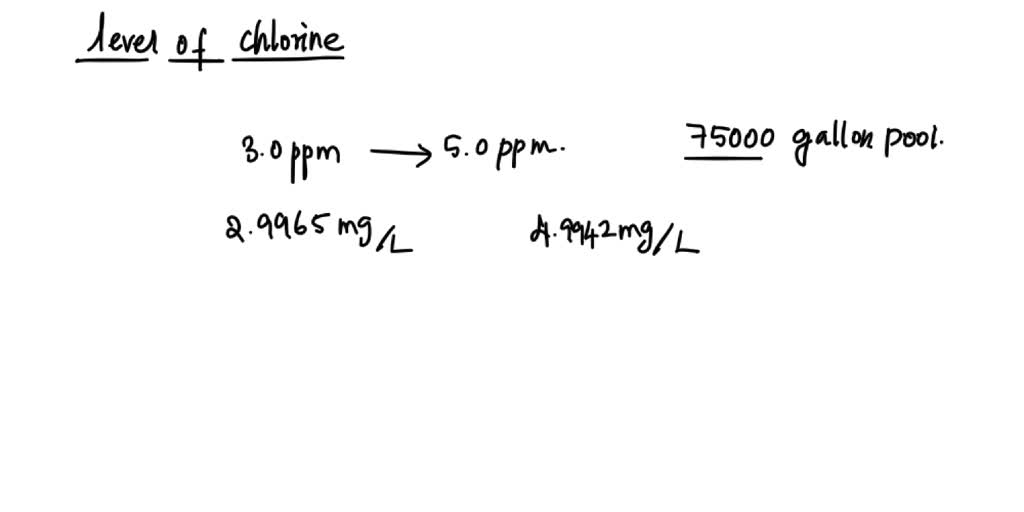 level of chlorine
3.0 ppm → 5.0 ppm. 75000 gallon pool.
2.9965 mg/L 4.9942 mg/L